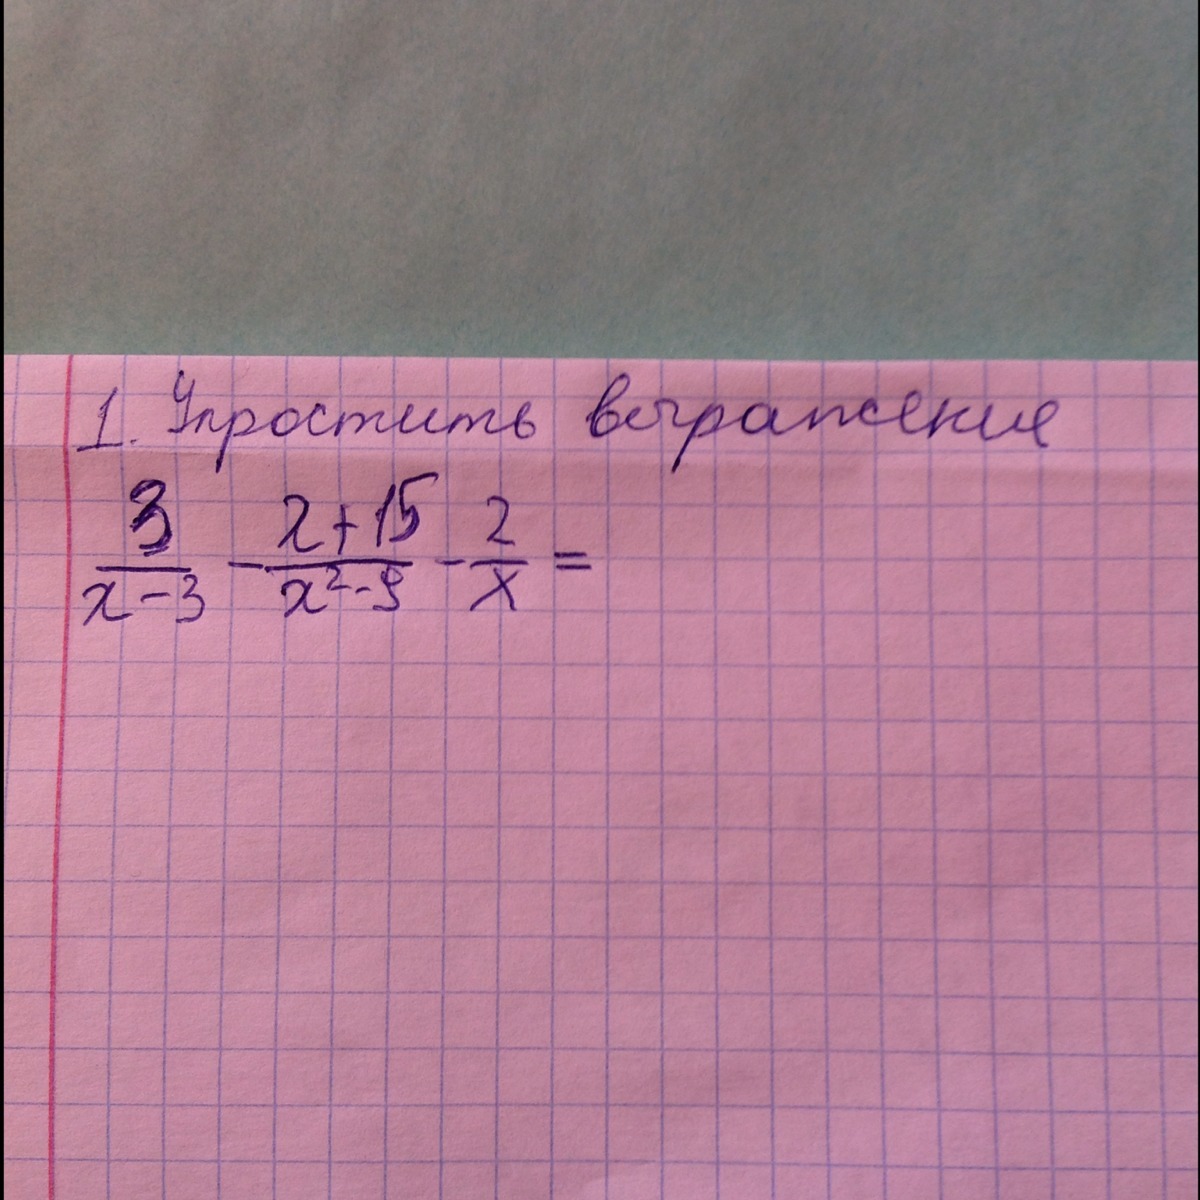 1. Упростить выражение
3/(x-3) - (x+15)/(x²-9) - 2/x =